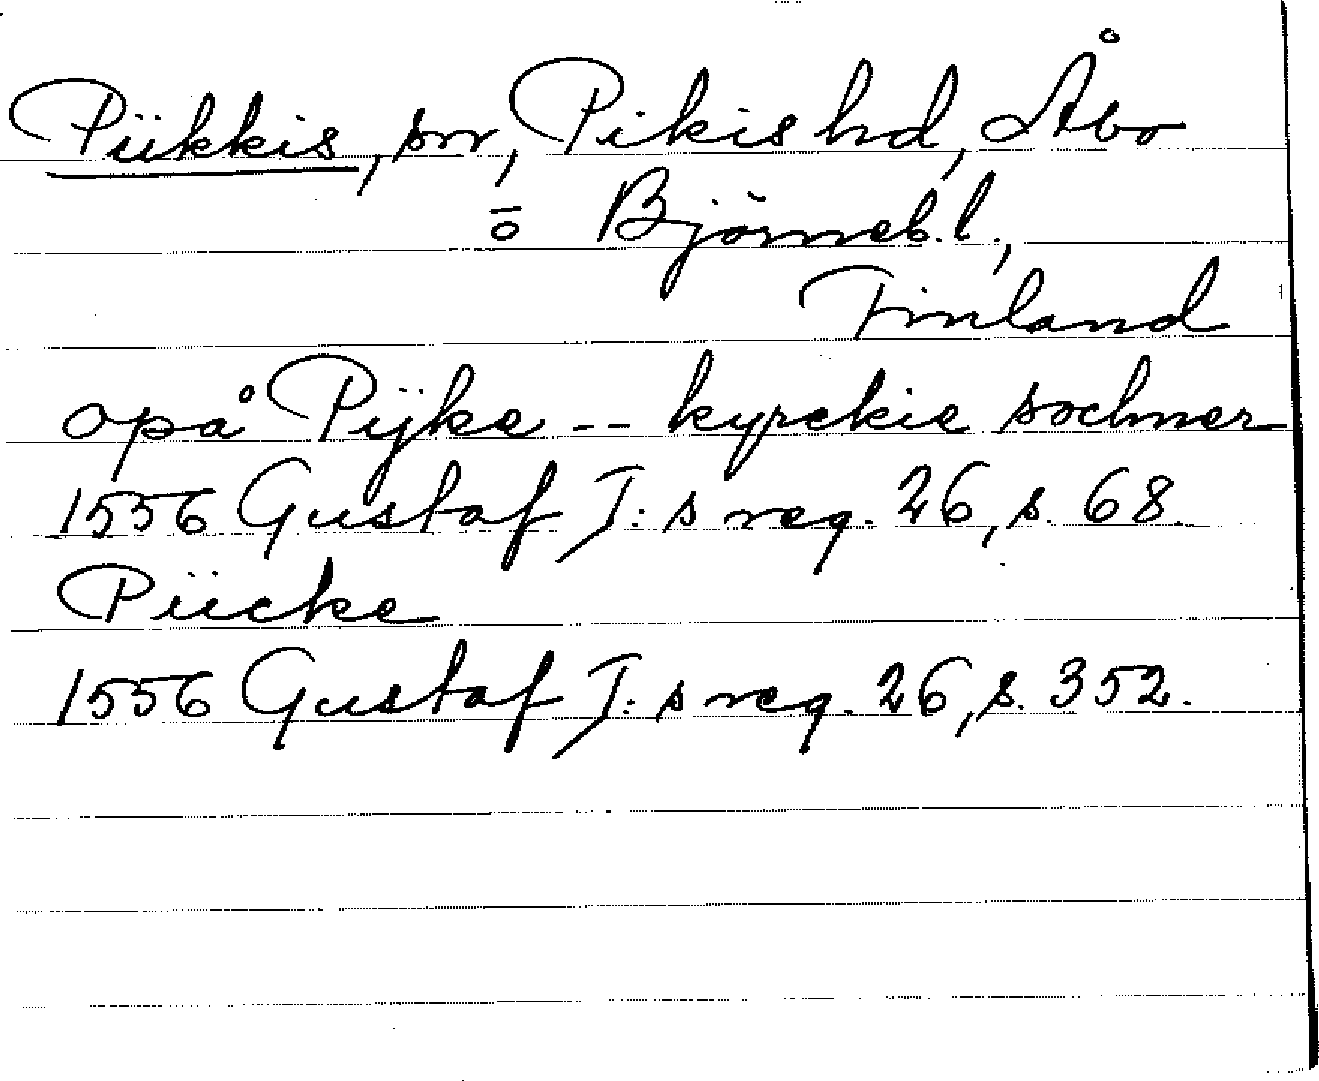 Piikkis, sn, Pikis hd, Åbo
o Björneb. l.,
Finland
opå Pijke -- kyrckie sochner
1556 Gustaf I:s reg. 26, s. 68.
Piicke
1556 Gustaf I:s reg. 26, s. 352.